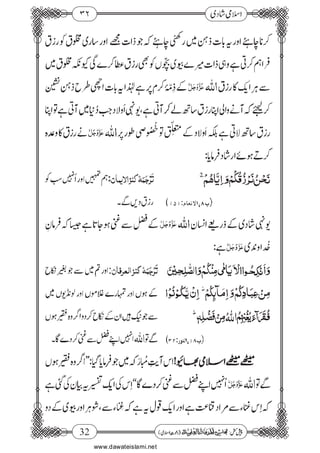 ۳۲ اسلامی شادی
کرنا چاہئے اور یہ بات ذہن میں رکھنی چاہئے کہ جو ذات مجھے اور ساری مخلوق کو رزق
فراہم کرتی ہے وہی ذات میرے بیوی بچوں کو بھی رزق عطا کرے گی کیونکہ مخلوق میں
سے ہر ایک کا رزق اللہ عَزَّوَجَلَّ کے ذِمّۂ کرم پر ہے لہٰذا یہ بات اچھی طرح ذہن نشین
کر لیجئے کہ آنے والی اپنا رزق ساتھ لے کر آتی ہے، یونہی اولاد جب دنیا میں آتی ہے تو اپنا
رزق ساتھ لاتی ہے بلکہ اولاد کے متعلق تو خصوصی طور پر اللہ عَزَّوَجَلَّ نے رزق کا وعدہ
کرتے ہوئے ارشاد فرمایا:
نَحْنُ نَرْزُقُكُمْ وَاِیَّاهُمْ ۚ ترجمۂ کنز الایمان: ہم تمہیں اور انہیں سب کو
(پ۸،الانعام:۱۵۱) رزق دیں گے۔
یونہی شادی کے ذریعے انسان اللہ عَزَّوَجَلَّ کے فضل سے غنی ہو جاتا ہے جیسا کہ فرمانِ
خداوندی عَزَّوَجَلَّ ہے:
وَاَنْكِحُوا الْاَیَامٰى مِنْكُمْ وَالصّٰلِحِیْنَ ترجمۂ کنز العرفان: اور تم میں سے جو بغیر نکاح
مِنْ عِبَادِكُمْ وَاِمَآىٕكُمْ ؕ اِنْ یَّكُوْنُوْا کے ہوں اور تمہارے غلاموں اور لونڈیوں میں
فُقَرَآءَ یُغْنِهِمُ اللّٰهُ مِنْ فَضْلِهٖ ؕ سے جو نیک ہیں ان کے نکاح کر دو۔ اگر وہ فقیر ہوں
(پ۱۸،النور:۳۲) گے تو اللہ انہیں اپنے فضل سے غنی کر دے گا۔
میٹھے میٹھے اسلامی بھائیو! اس آیتِ مبارکہ میں جو فرمایا گیا: ”اگر وہ فقیر ہوں
گے تو اللہ عَزَّوَجَلَّ انہیں اپنے فضل سے غنی کر دے گا“ اس کی ایک تفسیر یہ بیان کی گئی ہے
کہ اس غناء سے مراد قناعت ہے اور ایک قول یہ ہے کہ غناء سے، شوہر اور بیوی کے دو
32
www.dawateislami.net